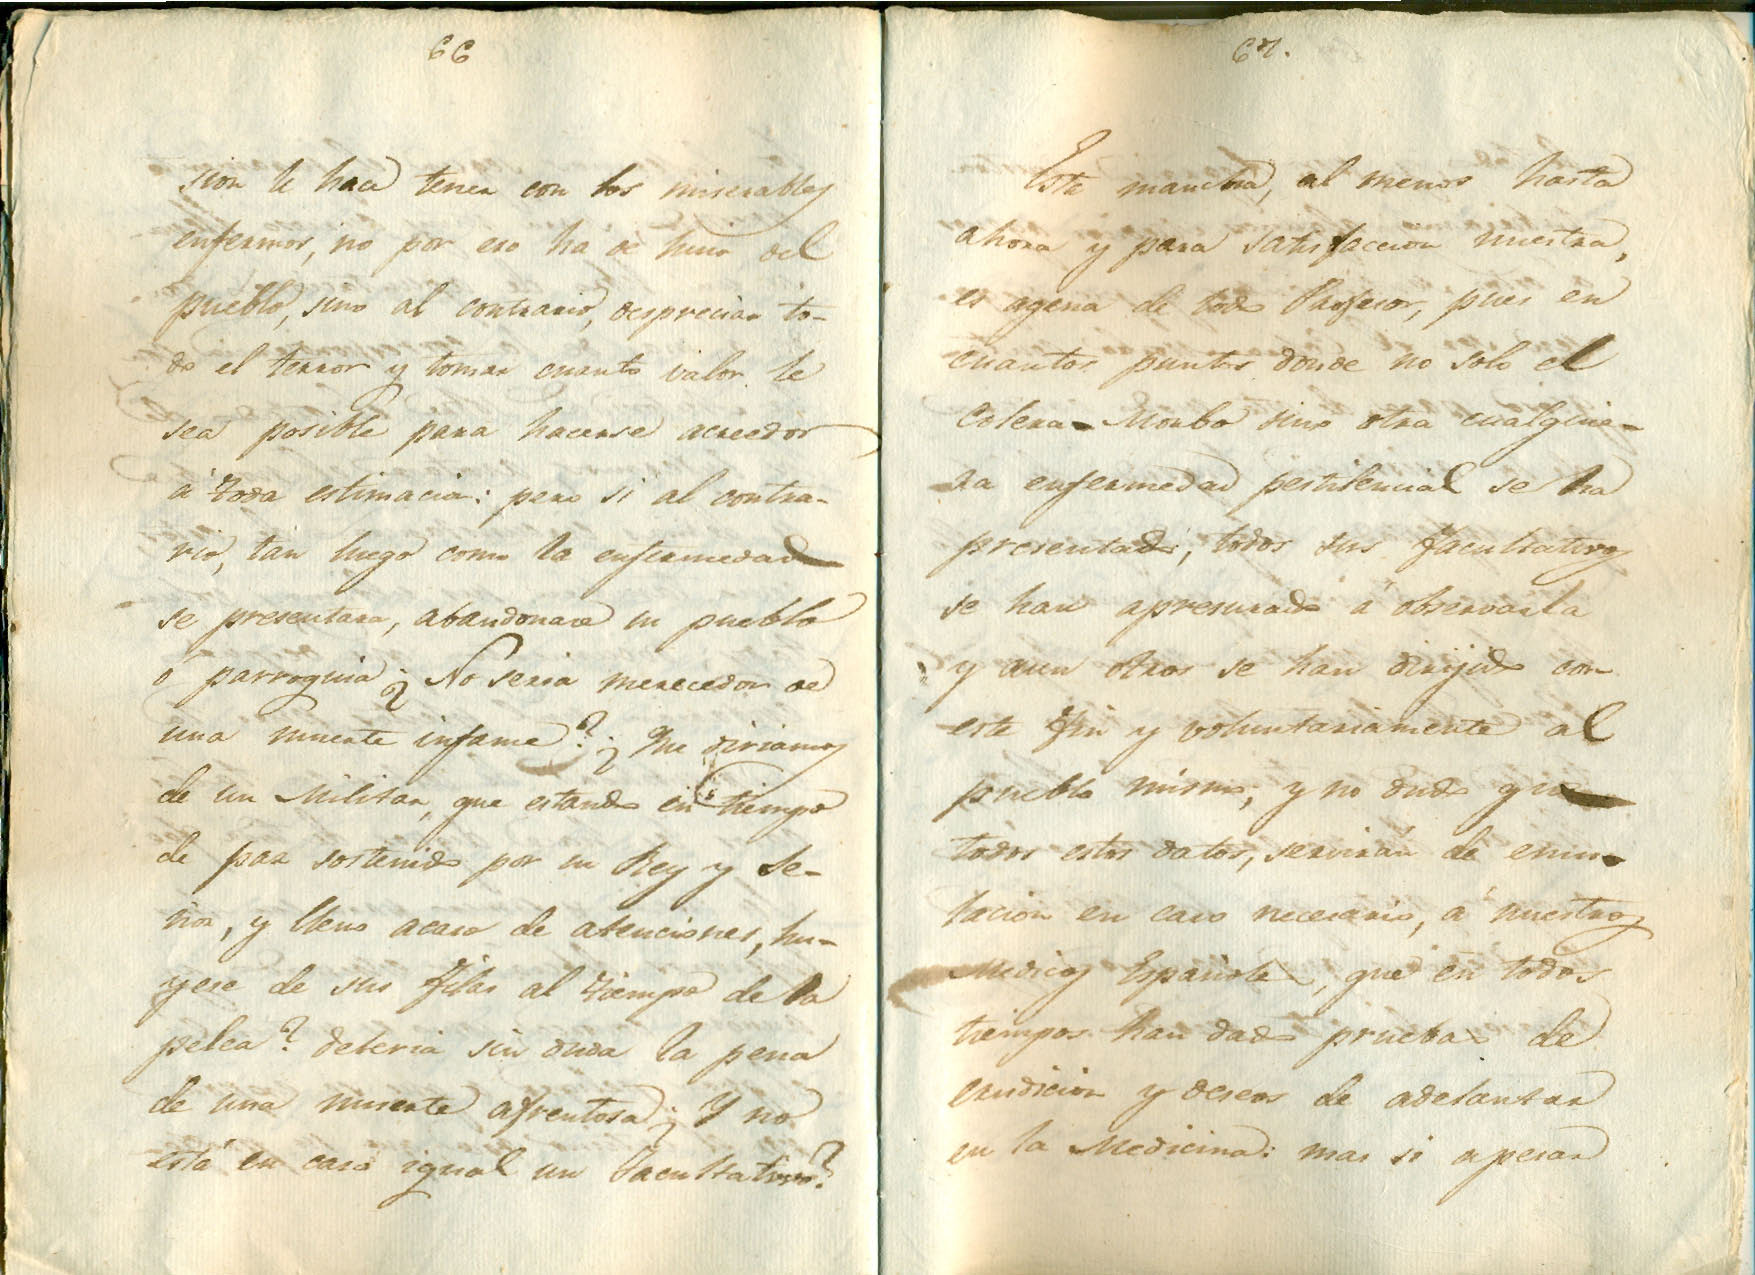 66
sion le hace tener con los miserables
enfermos, no por eso ha de huir del
pueblo, sino al contrario, despreciar to-
do el terror y tomar cuanto valor le
sea posible para hacerse acreedor
á toda estimacion: pero si al contra-
rio, tan luego como la enfermedad
se presentara, abandonare su pueblo
ó parroquia ¿No seria merecedor de
una muerte infame? ¿Que diriamos
de un Militar, que estando en tiempo
de paz sostenido por su Rey y Se-
ñor, y lleno acaso de atenciones, hu-
yese de sus filas al tiempo de la
pelea? deberia sin duda la pena
de una muerte afrentosa ¿Y no
está en caso igual un Facultativo?
67.
Esta mancha, al menos hasta
ahora y para satisfaccion nuestra,
es agena de todo Profesor, pues en
cuantos puntos donde no solo el
Colera-Morbo sino otra cualquie-
ra enfermedad pestilencial se ha
presentado, todos sus facultativos
se han apresurado á observarla
y aun otros se han dirijido con
este fin y voluntariamente al
pueblo mismo, y no dudo que
todos estos datos, servirán de emu-
lacion en caso necesario, á nuestros
Medicos Españoles, que en todos
tiempos han dado pruebas de
erudicion y deseos de adelantar
en la Medicina: mas si apesar